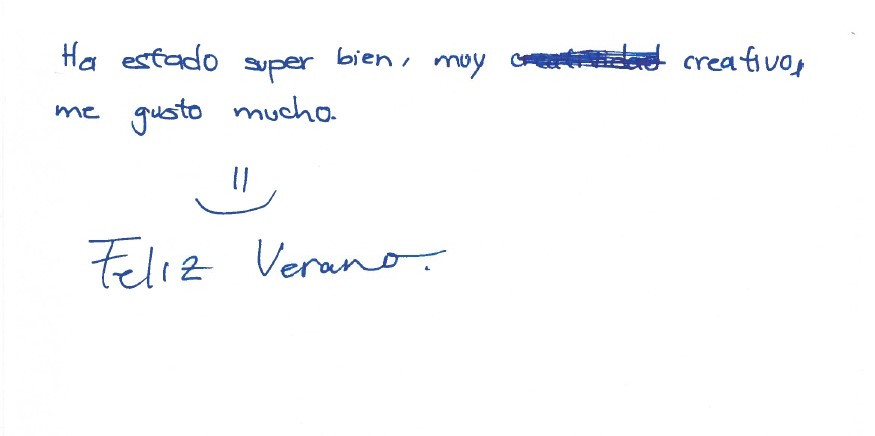 Ha estado super bien, muy creativo,
me gusto mucho.
Feliz Verano.